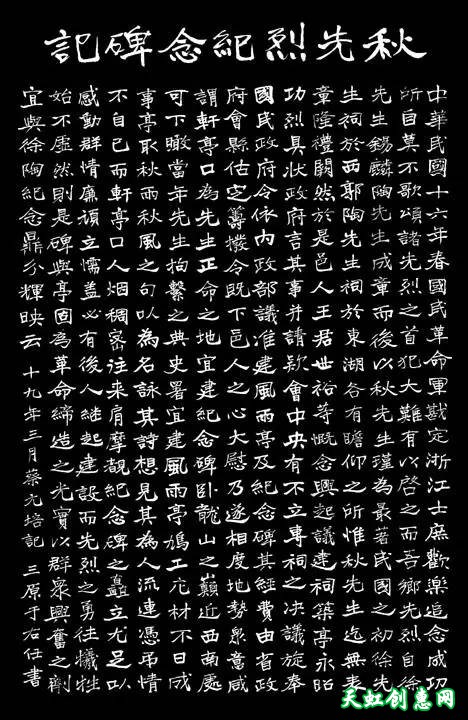 秋先烈紀念碑記
中華民國十六年春國民革命軍戡定浙江士庶歡樂追念成功
所自莫不歌頌諸先烈之首犯大難有以啓之而吾鄉先烈自徐
先生錫麟陶先生成章而後以秋先生瑾為最著民國之初徐先
生祠於西郭陶先生祠於東湖各有瞻仰之所惟秋先生迄無表
章隆禮闕然於是邑人王君世裕等慨念興起議建祠築亭永昭
功烈具狀政府言其事并請款會中央有不立專祠之決議旋奉
國民政府令依內政部議准建風雨亭及紀念碑其經費由省政
府會縣估定籌撥令既下邑人之心大慰乃遂相度地勢衆意咸
謂軒亭口為先生正命之地宜建紀念碑卧龍山之巔近西南處
可下瞰當年先生拘繫之典史署宜建風雨亭鳩工庀材不日成
事亭取秋雨秋風之句以為名詠其詩想見其為人流連憑弔情
不自已而軒亭口人烟稠密往來肩摩覩紀念碑之矗立尤足以
感動群情廉頑立懦蓋必有後人繼起建設而先烈之勇往犧牲
始不虛然則是碑與亭固為革命締造之光實以群衆興奮之劑
宜與徐陶紀念鼎分輝映云 十九年三月蔡元培記 三原于右任書
天虹创惠网